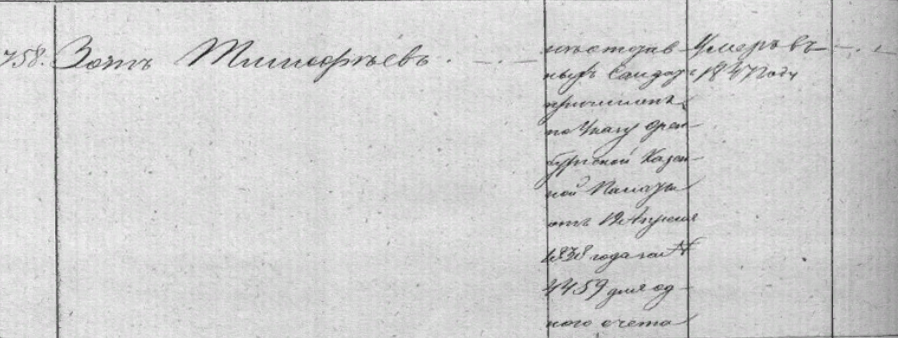 758. Зотъ Тимофѣевъ.
изъ отстав-
ныхъ солдатъ
причисленъ
по Указу Орен-
бургской Казен-
ной Палаты
отъ 19 Апреля
1838 года за №
4459 для од-
ного счета
Умеръ въ
1847 году